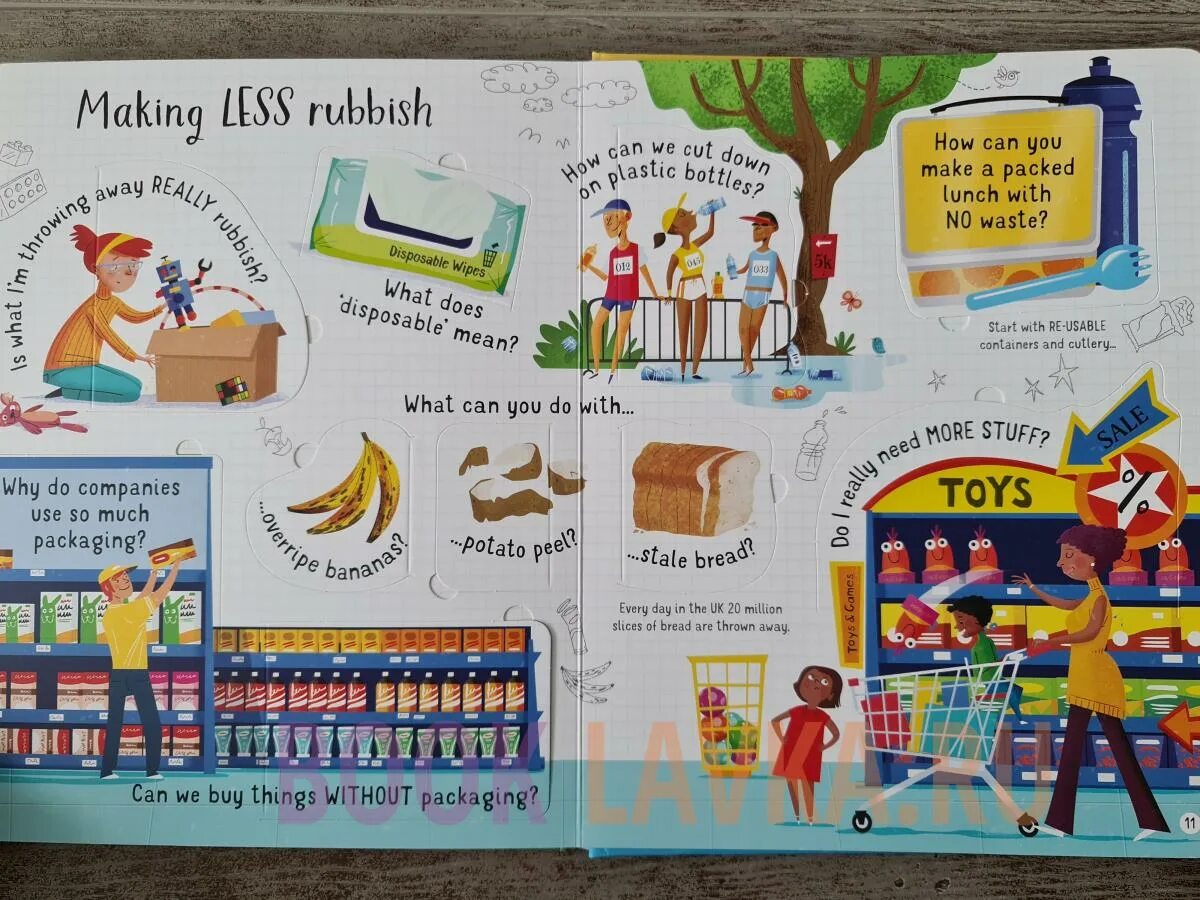 Making LESS rubbish
Is what I'm throwing away REALLY rubbish?
Disposable Wipes
What does
'disposable' mean?
How can we cut down
on plastic bottles?
012
045
033
5k
How can you
make a packed
lunch with
NO waste?
Start with RE-USABLE
containers and cutlery...
What can you do with...
...overripe bananas?
...potato peel?
...stale bread?
Every day in the UK 20 million
slices of bread are thrown away.
Why do companies
use so much
packaging?
Can we buy things WITHOUT packaging?
Do I really need MORE STUFF?
SALE
%
TOYS
Toys & Games
11
BOOK LAVKA.RU